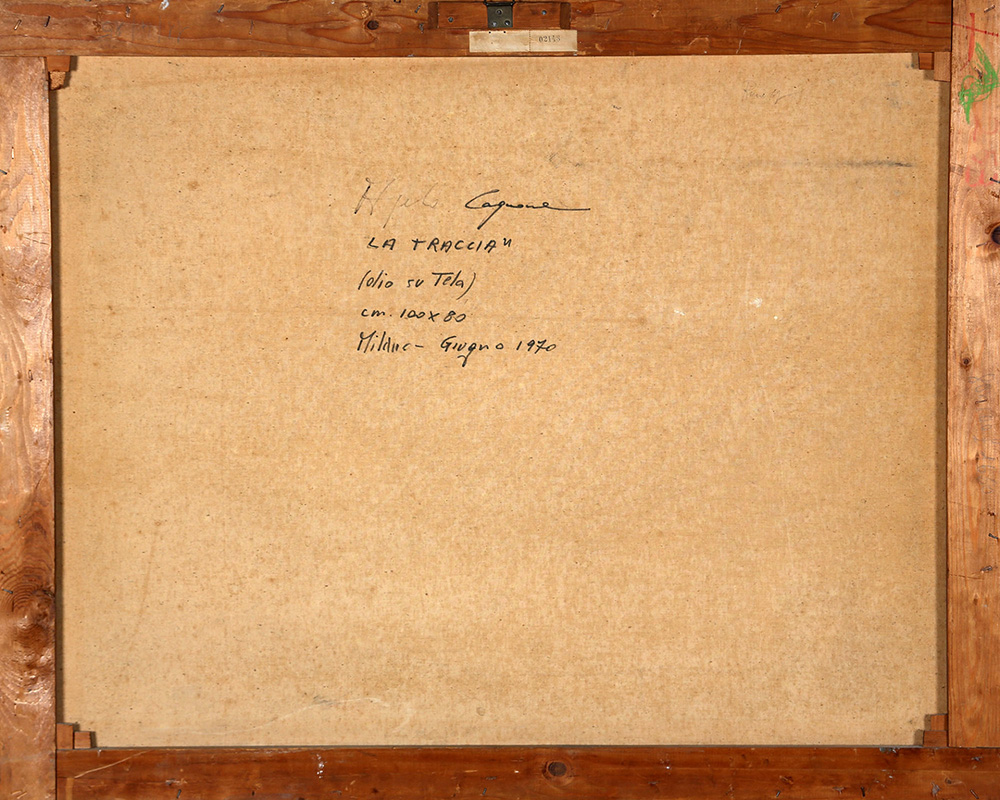 02136
Cagnone
LA TRACCIA"
(olio su Tela)
cm. 100x80
Milano - Giugno 1970